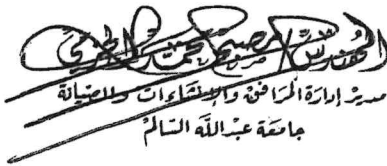 المهندس
مدير إدارة المرافق والإنشاءات والصيانة
جامعة عبدالله السالم